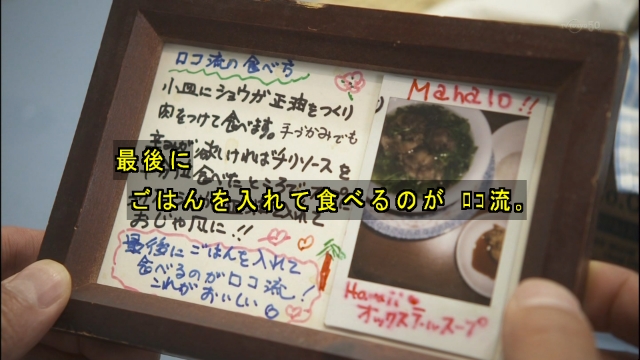 ロコ流の食べ方
小皿にショウガ正油をつくり
肉をつけて食べます。手づかみでも
辛みが欲しければチリソースを
おじや風に!!
最後にごはんを入れて
食べるのがロコ流!
これがおいしい
Mahalo!!
Hawaii
オックステールスープ
最後に
ごはんを入れて食べるのが ﾛｺ流。